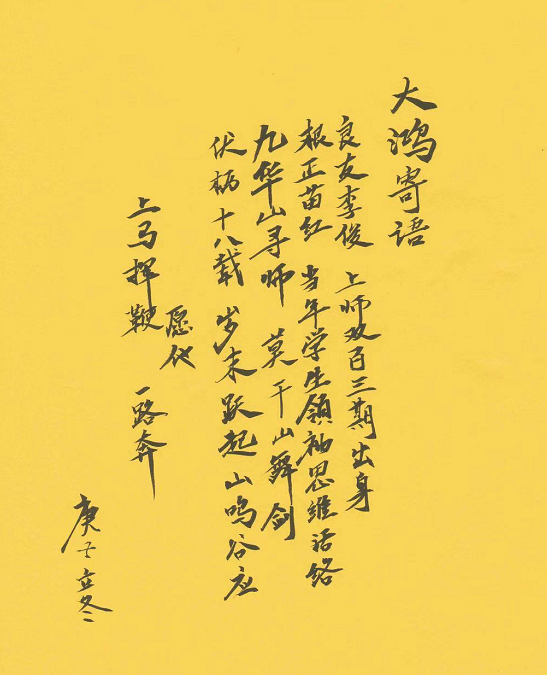 大鸿寄语
良友李俊 上师双百三期出身
根正苗红 当年学生领袖思维活络
九华山寻师 莫干山舞剑
伏枥十八载 岁末跃起山鸣谷应
愿他
上马挥鞭 一路奔
庚子立冬